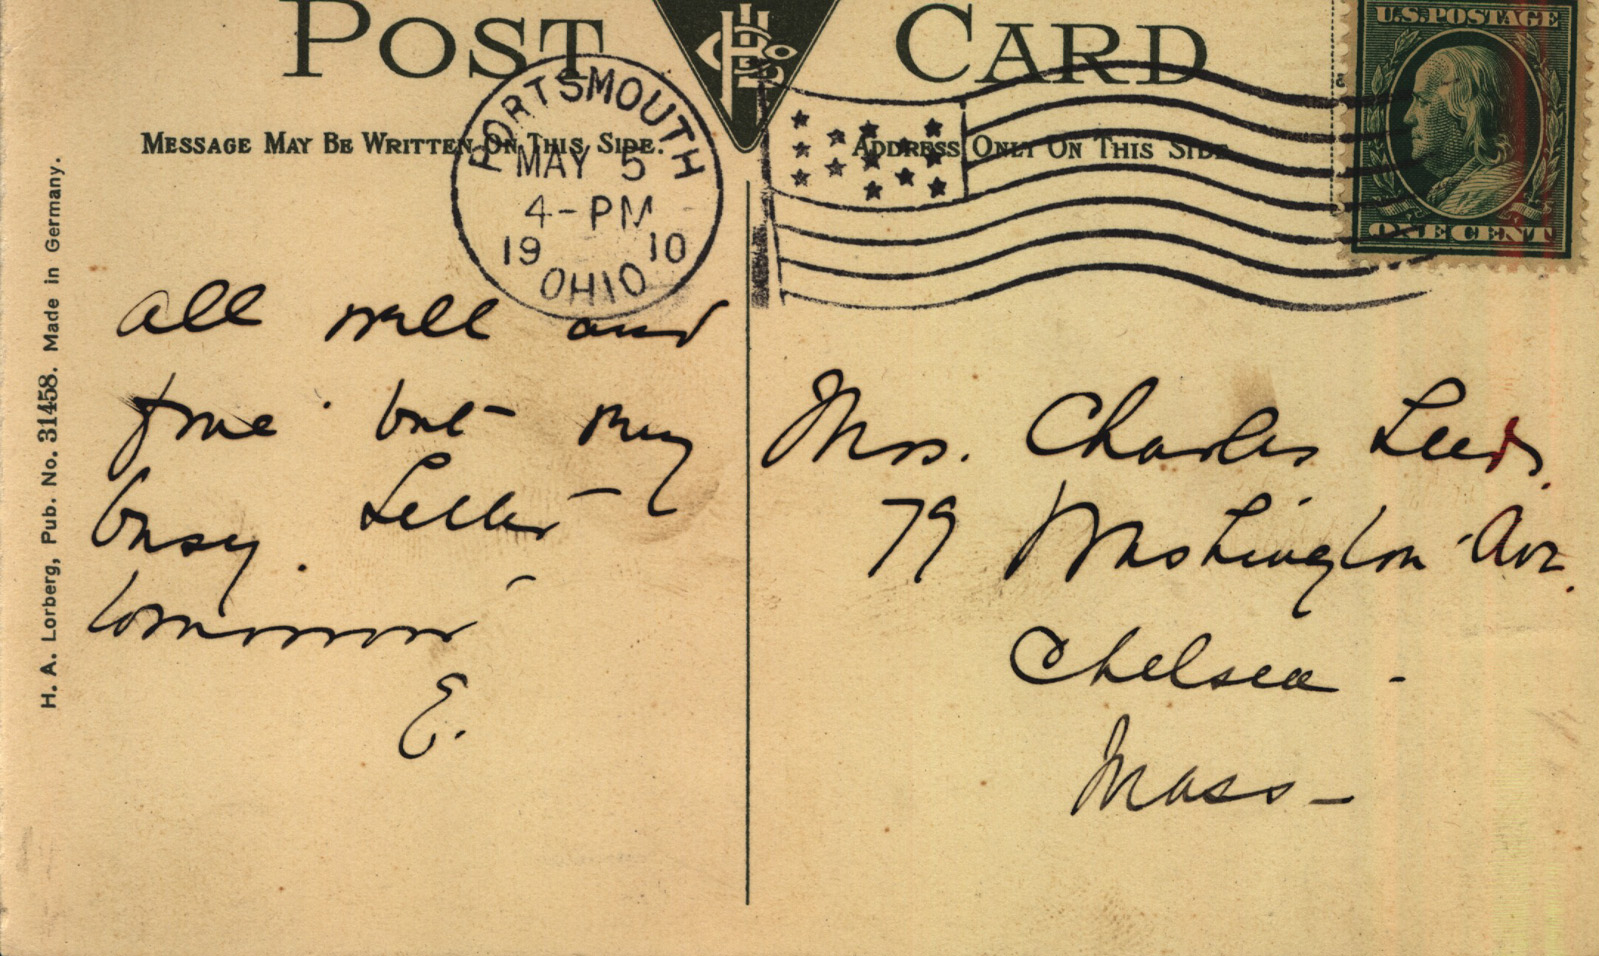 POST CARD
MESSAGE MAY BE WRITTEN ON THIS SIDE.
ADDRESS ONLY ON THIS SIDE
U.S. POSTAGE
ONE CENT
PORTSMOUTH
MAY 5
4-PM
1910
OHIO
H. A. Lorberg, Pub. No. 31458. Made in Germany.
all well and
fine but very
busy. Letter
tomorrow
E.
Mrs. Charles Leeds.
79 Washington Ave.
Chelsea -
Mass -